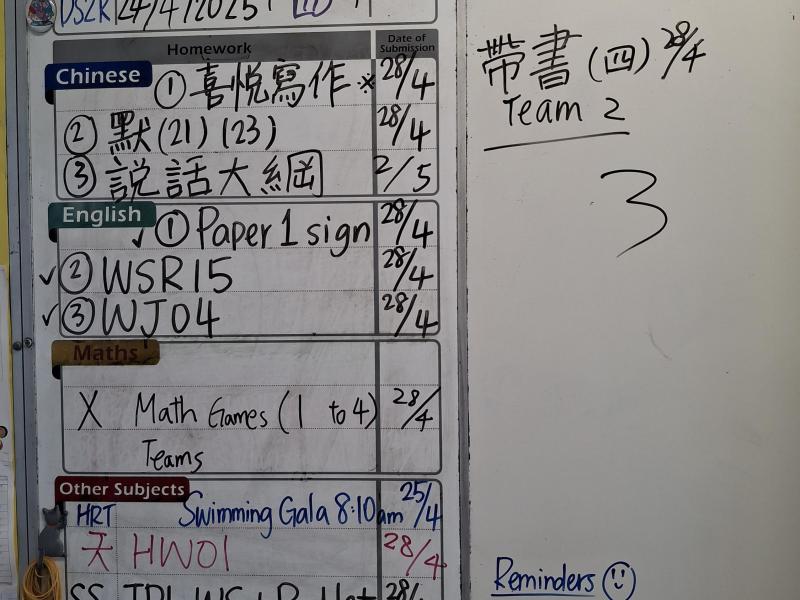 DS2R 24/4/2025
Homework Date of Submission
Chinese ① 喜悅寫作 * 28/4
② 默(21)(23) 28/4
③ 説話大綱 2/5
English ✓ ① Paper 1 sign 28/4
✓ ② WSR15 28/4
✓ ③ WJ04 28/4
Maths
X Math Games (1 to 4) 28/4
Teams
Other Subjects
HRT Swimming Gala 8:10am 25/4
天 HW01 28/4
SS 28/
帶書(四) 28/4
Team 2
3
Reminders